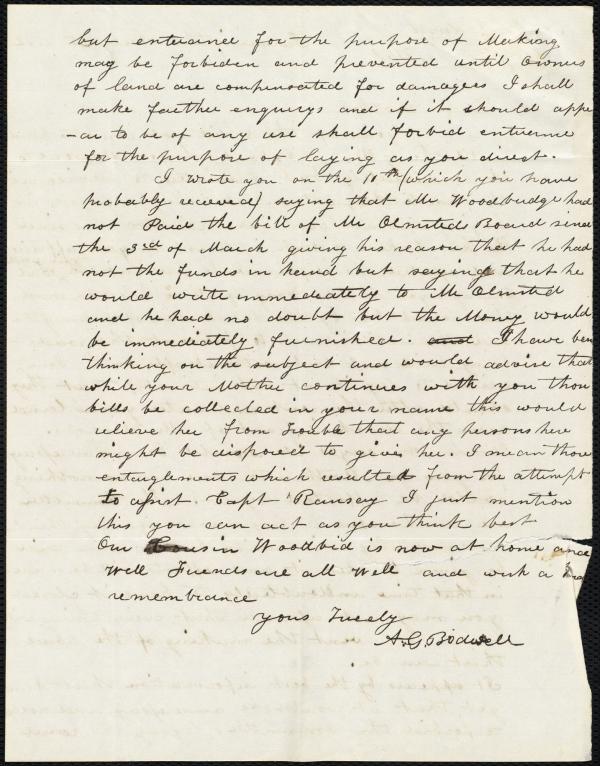 but enterance for the purpose of Making
may be forbiden and prevented until Owners
of land are compensated for damages I shall
make farther enquirys and if it should appe
-ar to be of any use shall forbid enterance
for the purpose of laying as you direct.
I wrote you on the 10th (which you have
probably received) saying that Mr Woodbridge had
not Paid the bill of Mr Olmsteds Board since
the 3rd of March giving his reason that he had
not the funds in hand but saying that he
would write immediately to Mr Olmsted
and he had no doubt but the Money would
be immediately furnished. and I have been
thinking on the subject and would advise that
while your Mother continues with you thou
bills be collected in your name this would
relieve her from trouble that any persons here
might be disposed to give her. I mean those
entanglements which resulted from the attempt
to assist Capt Ramsay I just mention
this you can act as you think best
Our Cousin Woodbid is now at home and
Well Friends are all Well and wish a
remembrance
Yours Truely
A. G. Bodwell